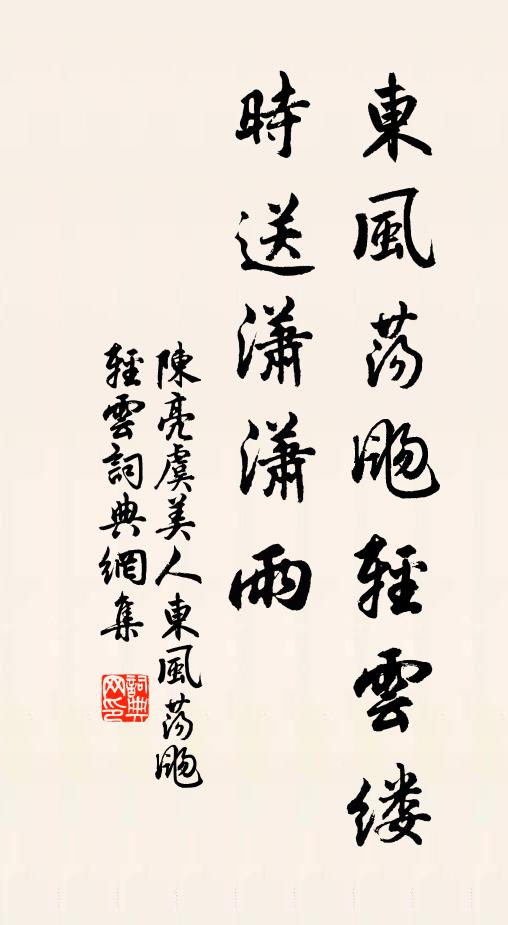 東風荡飏輕雲缕
時送瀟瀟雨
陳亮虞美人東風荡飏
輕雲詞典網集
詞典
网印